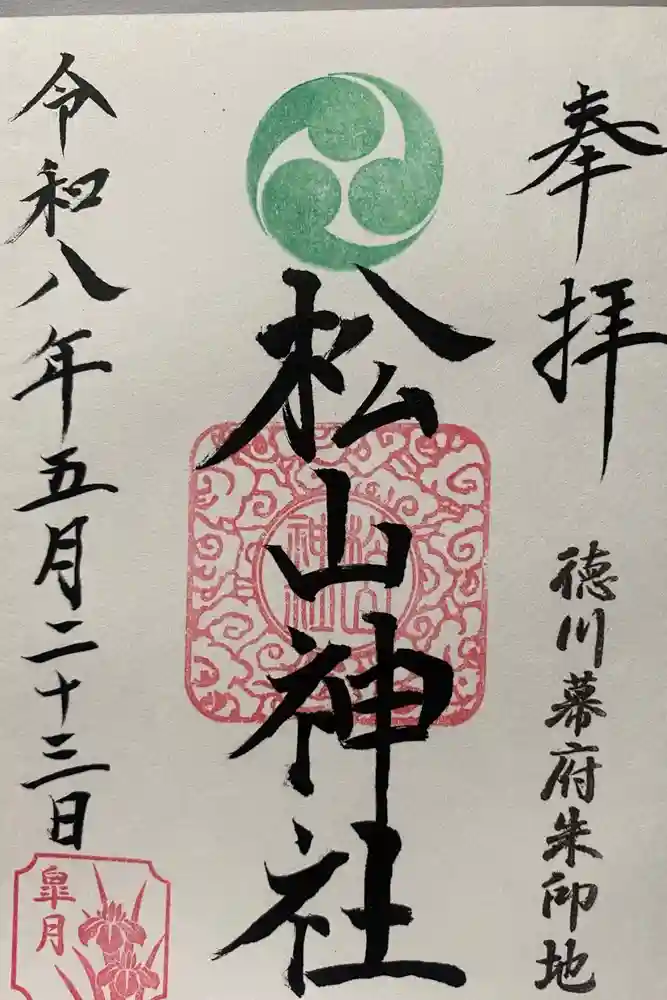 奉拝
徳川幕府朱印地
松山神社
令和八年五月二十三日
皐月